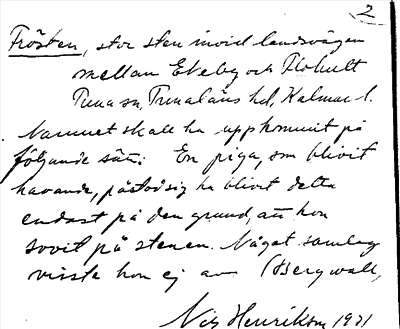 2
Frösten, stor sten invid landsvägen
mellan Ekeby och Flohult
Tuna sn, Tunaläns hd, Kalmar l.
Namnet skall ha uppkommit på
följande sätt: En piga, som blivit
havande, påstod sig ha blivit detta
endast på den grund, att hon
sovit på stenen. Något samlag
visste hon ej av (Bergwall,
Nils Henrikson 1921